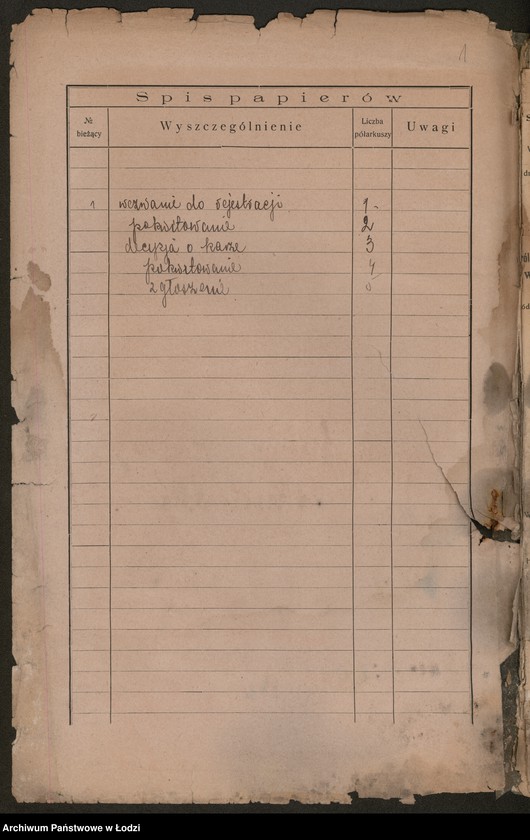 1
Spis papierów
№ bieżący
Wyszczególnienie
Liczba półarkuszy
Uwagi
1 wezwanie do rejestracji 1-
pokwitowanie 2
decyzja o karze 3
pokwitowanie 4
zgłoszenie
Archiwum Państwowe w Łodzi